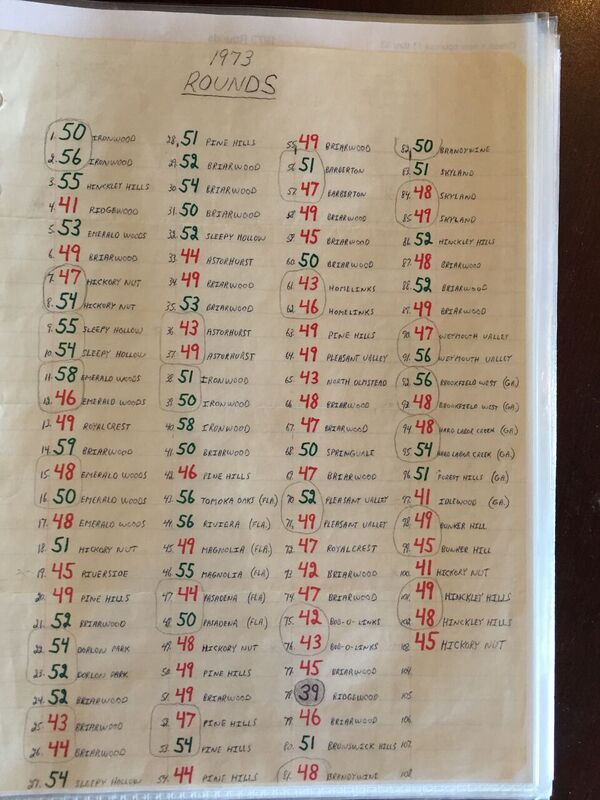 1973
ROUNDS
1. 50 IRONWOOD
2. 56 IRONWOOD
3. 55 HINCKLEY HILLS
4. 41 RIDGEWOOD
5. 53 EMERALD WOODS
6. 49 BRIARWOOD
7. 47 HICKORY NUT
8. 54 HICKORY NUT
9. 55 SLEEPY HOLLOW
10. 54 SLEEPY HOLLOW
11. 58 EMERALD WOODS
12. 46 EMERALD WOODS
13. 49 ROYALCREST
14. 59 BRIARWOOD
15. 48 EMERALD WOODS
16. 50 EMERALD WOODS
17. 48 EMERALD WOODS
18. 51 HICKORY NUT
19. 45 RIVERSIDE
20. 49 PINE HILLS
21. 52 BRIARWOOD
22. 54 DORLON PARK
23. 52 DORLON PARK
24. 52 BRIARWOOD
25. 43 BRIARWOOD
26. 44 BRIARWOOD
27. 54 SLEEPY HOLLOW
28. 51 PINE HILLS
29. 52 BRIARWOOD
30. 54 BRIARWOOD
31. 50 BRIARWOOD
32. 52 SLEEPY HOLLOW
33. 44 ASTORHURST
34. 49 BRIARWOOD
35. 53 BRIARWOOD
36. 43 ASTORHURST
37. 49 ASTORHURST
38. 51 IRONWOOD
39. 50 IRONWOOD
40. 58 IRONWOOD
41. 50 BRIARWOOD
42. 46 PINE HILLS
43. 56 TOMOKA OAKS (FLA)
44. 56 RIVIERA (FLA.)
45. 49 MAGNOLIA (FLA)
46. 55 MAGNOLIA (FLA)
47. 44 PASADENA (FLA)
48. 50 PASADENA (FLA)
49. 48 HICKORY NUT
50. 49 PINE HILLS
51. 49 BRIARWOOD
52. 47 PINE HILLS
53. 54 PINE HILLS
54. 44 PINE HILLS
55. 49 BRIARWOOD
56. 51 BARBERTON
57. 47 BARBERTON
58. 49 BRIARWOOD
59. 45 BRIARWOOD
60. 50 BRIARWOOD
61. 43 HOMELINKS
62. 46 HOMELINKS
63. 49 PINE HILLS
64. 49 PLEASANT VALLEY
65. 43 NORTH OLMSTEAD
66. 48 BRIARWOOD
67. 47 BRIARWOOD
68. 50 SPRINGVALE
69. 47 BRIARWOOD
70. 52 PLEASANT VALLEY
71. 49 PLEASANT VALLEY
72. 47 ROYALCREST
73. 42 BRIARWOOD
74. 47 BRIARWOOD
75. 42 BOB-O-LINKS
76. 43 BOB-O-LINKS
77. 45 BRIARWOOD
78. 39 RIDGEWOOD
79. 46 BRIARWOOD
80. 51 BRUNSWICK HILLS
81. 48 BRANDYWINE
82. 50 BRANDYWINE
83. 51 SKYLAND
84. 48 SKYLAND
85. 49 SKYLAND
86. 52 HINCKLEY HILLS
87. 48 BRIARWOOD
88. 52 BRIARWOOD
89. 49 BRIARWOOD
90. 47 WEYMOUTH VALLEY
91. 56 WEYMOUTH VALLEY
92. 56 BROOKFIELD WEST (GA)
93. 48 BROOKFIELD WEST (GA)
94. 48 HARD LABOR CREEK (GA)
95. 54 HARD LABOR CREEK (GA)
96. 51 FOREST HILLS (GA)
97. 41 IDLEWOOD (GA)
98. 49 BUNKER HILL
99. 45 BUNKER HILL
100. 41 HICKORY NUT
101. 49 HINCKLEY HILLS
102. 48 HINCKLEY HILLS
103. 45 HICKORY NUT
104.
105.
106.
107.
108.